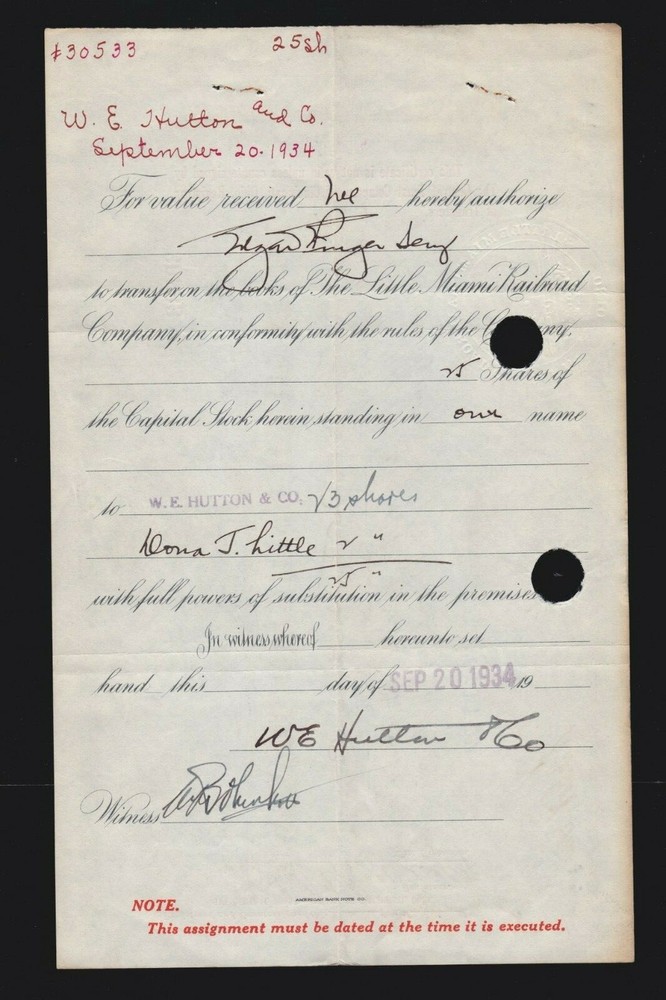 #30533 25sh
W. E. Hutton and Co.
September 20. 1934
For value received we hereby authorize
Edgar
to transfer on the books of The Little Miami Railroad
Company, in conformity with the rules of the Company,
25 Shares of
the Capital Stock herein standing in our name
to W. E. HUTTON & CO. 23 shares
Dona T. Little 2 "
25 "
with full powers of substitution in the premises
In witness whereof hereunto set
hand this day of SEP 20 1934 19
WE Hutton & Co
Witness
AMERICAN BANK NOTE CO.
NOTE.
This assignment must be dated at the time it is executed.